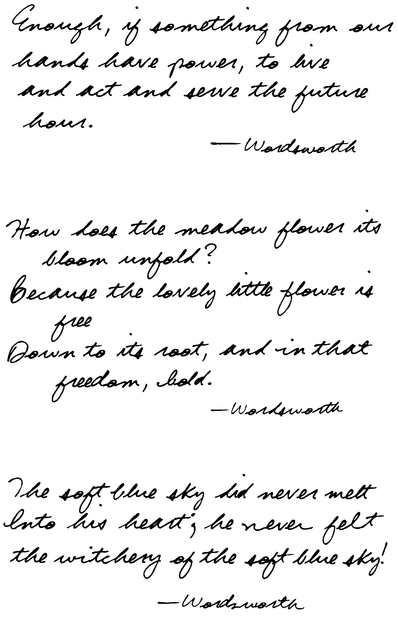 Enough, if something from our
hands have power, to live
and act and serve the future
hour.
— Wordsworth
How does the meadow flower its
bloom unfold?
Because the lovely little flower is
free
Down to its root, and in that
freedom, bold.
— Wordsworth
The soft blue sky did never melt
Into his heart; he never felt
the witchery of the soft blue sky!
— Wordsworth